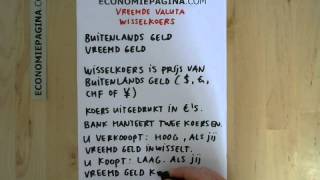 ECONOMIEPAGINA.COM
VREEMDE VALUTA
WISSELKOERS
BUITENLANDS GELD
VREEMD GELD
WISSELKOERS IS PRIJS VAN
BUITENLANDS GELD ($, £,
CHF OF ¥)
KOERS UITGEDRUKT IN €'S.
BANK HANTEERT TWEE KOERSEN.
U VERKOOPT: HOOG, ALS JIJ
VREEMD GELD INWISSELT.
U KOOPT: LAAG. ALS JIJ
VREEMD GELD K